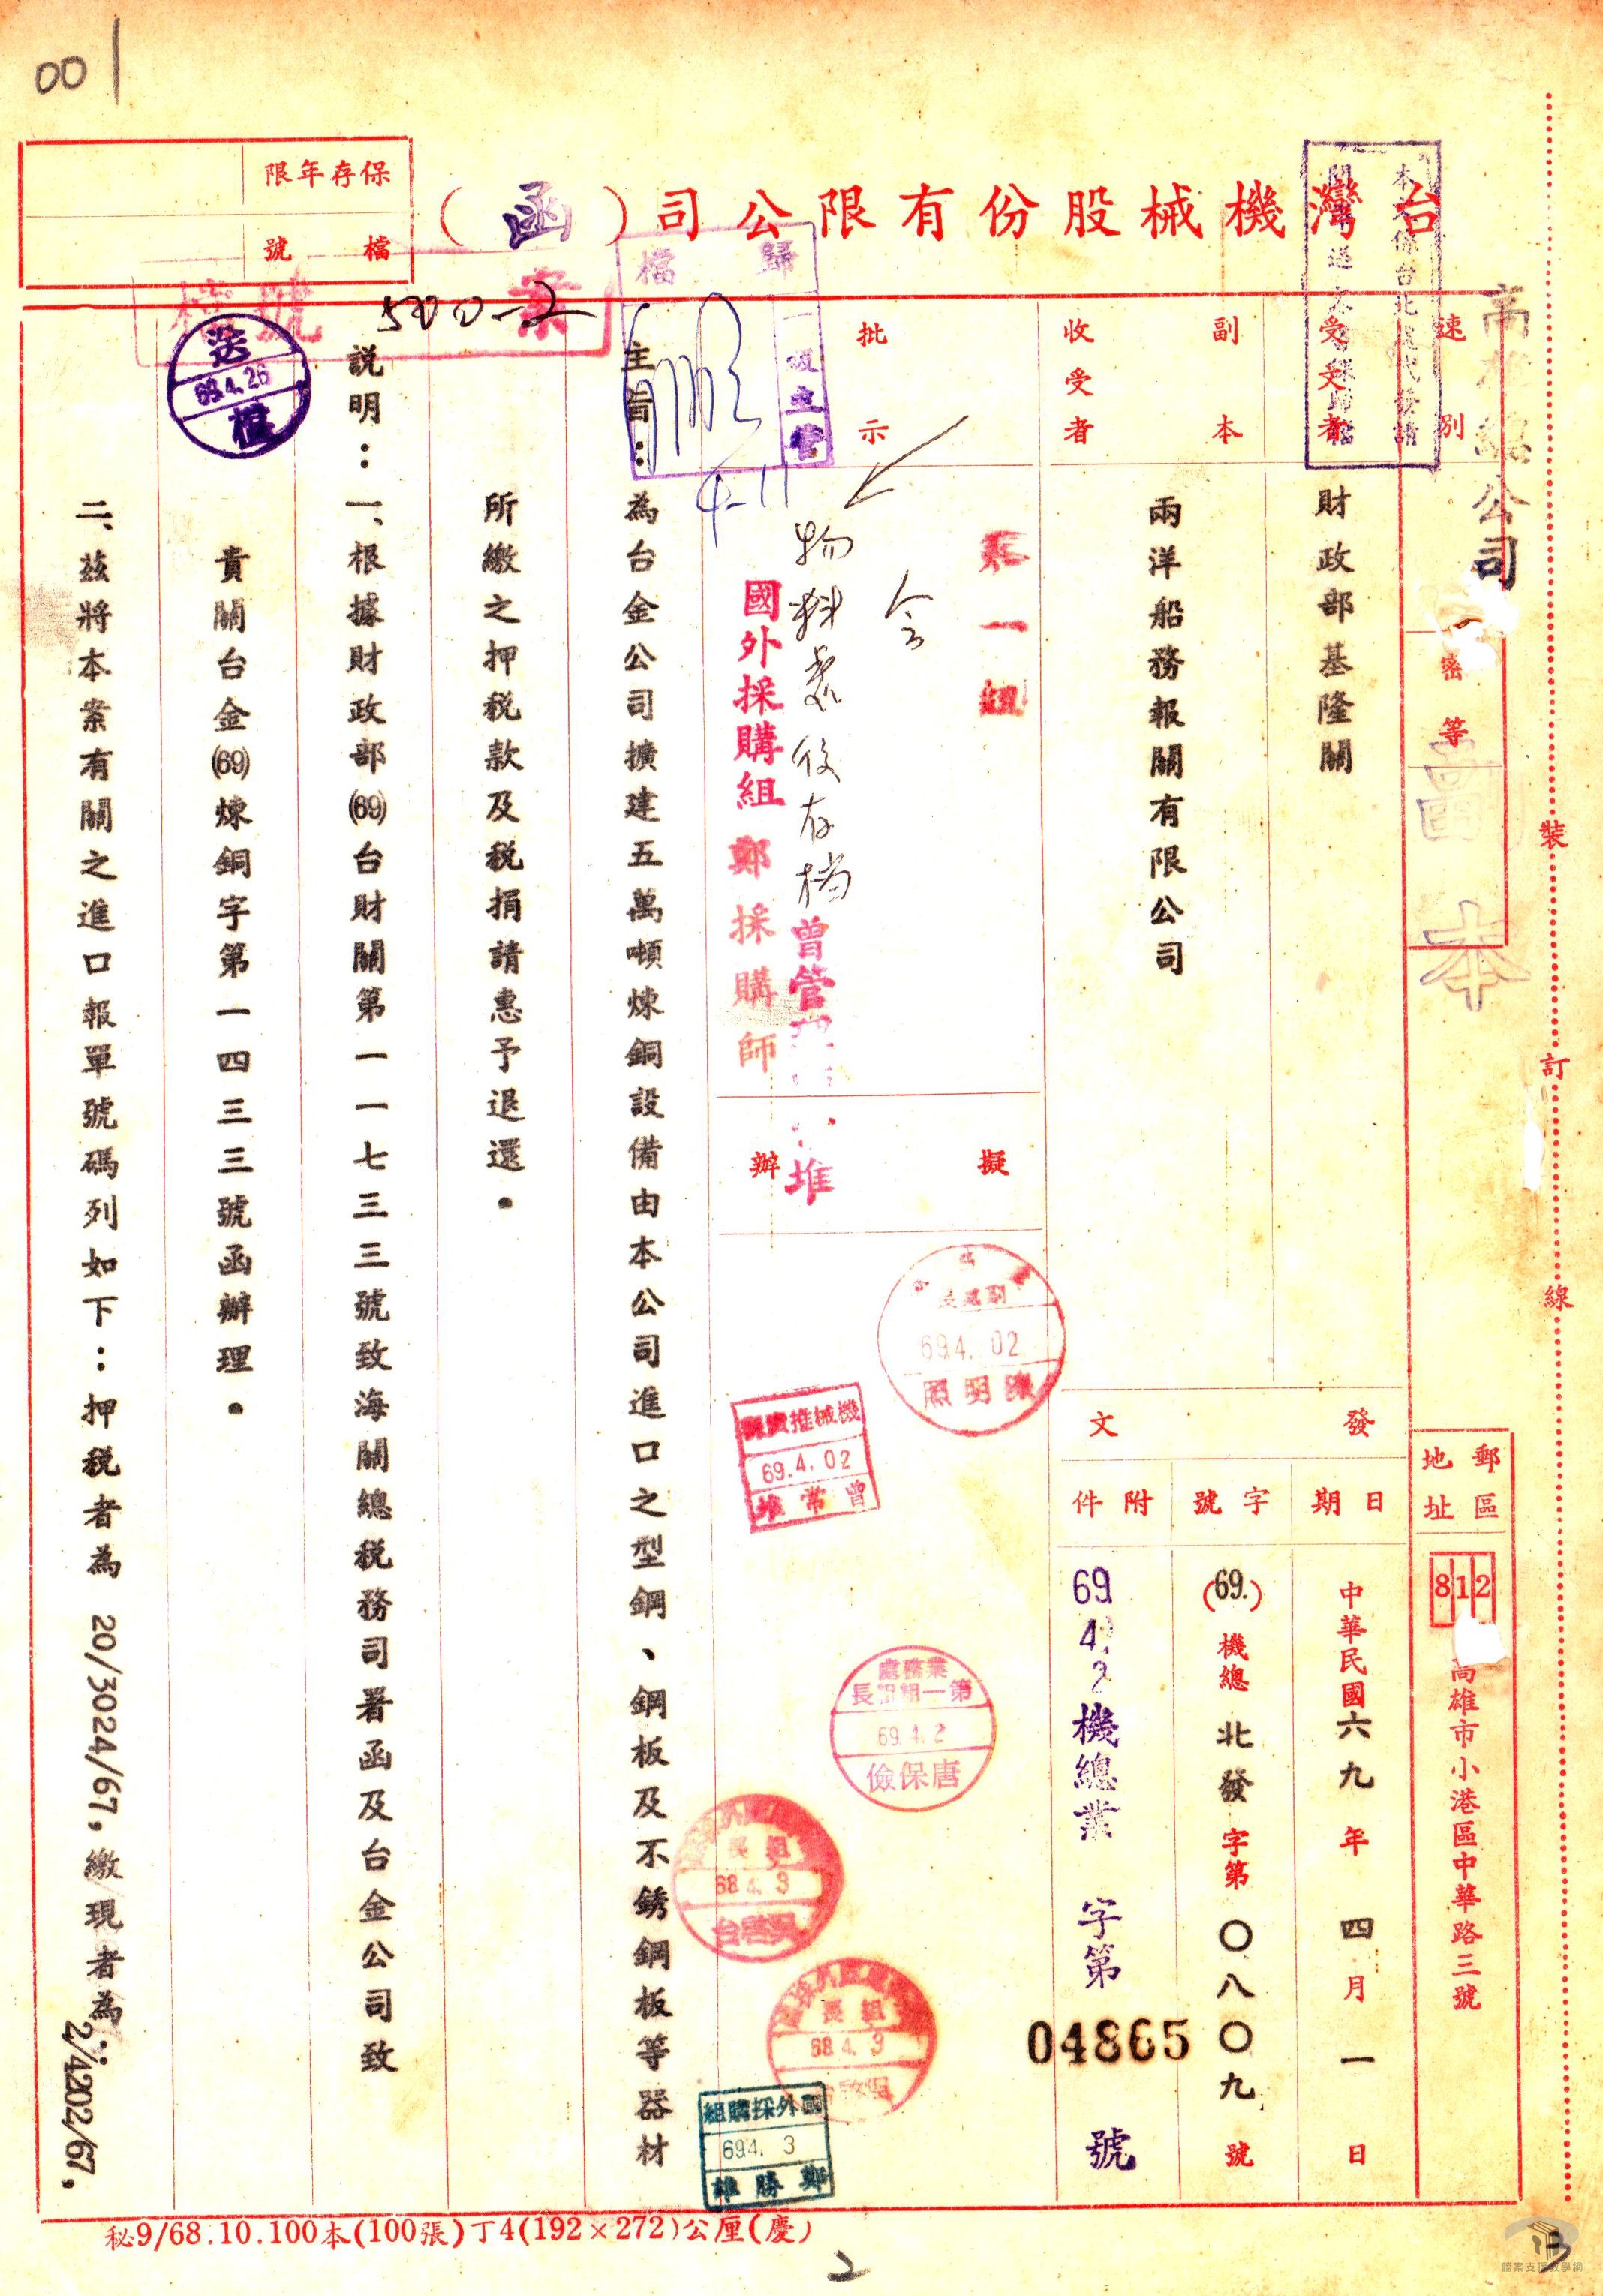 001
台灣機械股份有限公司（函）
保存年限
檔號
檔號
案
500-2
歸檔
高雄總公司
副本
速別
密等
受文者
財政部基隆關
副本收受者
兩洋船務報關有限公司
批示
第一組
物料處後存檔
國外採購組 鄭採購師
擬辦
郵區
地址
812
高雄市小港區中華路三號
發文
日期
中華民國六九年四月一日
字號
(69.)機總北發字第〇八〇九號
附件
69.4.2機總業字第04865號
69.4.02
陳明照
機械推貿課
69.4.02
曾常堆
業務處
第一組組長
69.4.2
唐保儉
組長
68.4.3
組長
68.4.3
國外採購組
69.4.3
鄭勝雄
4-11
主旨：為台金公司擴建五萬噸煉銅設備由本公司進口之型鋼、鋼板及不銹鋼板等器材
所繳之押税款及税捐請惠予退還。
説明：一、根據財政部(69)台財關第一一七三三號致海關總税務司署函及台金公司致
貴關台金(69)煉銅字第一四三三號函辦理。
二、茲將本案有關之進口報單號碼列如下：押税者為 20/3024/67，繳現者為：2/4202/67，
送檔
69.4.26
裝訂線
秘9/68.10.100本(100張)丁4(192×272)公厘(慶)
2
13
檔案支援教學網